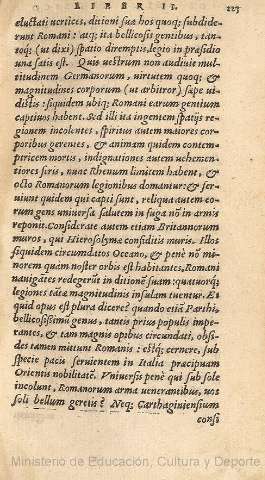 LIBER II. 223
eluctati uertices, ditioni suæ hos quoq; subdide-
runt Romani: atq; ita bellicosis gentibus, tan-
toq; (ut dixi) spatio diremptis, legio in præsidio
una satis est. Quis uestrum non audiuit mul-
titudinem Germanorum, uirtutem quoq; &
magnitudines corporum (ut arbitror) sæpe ui-
distis: siquidem ubiq; Romani earum gentium
captiuos habent. Sed illi ita ingentem spatijs re-
gionem incolentes, spiritus autem maiores cor-
poribus gerentes, & animam quidem contem-
ptricem mortis, indignationes autem uehemen-
tiores feris, nunc Rhenum limitem habent, &
octo Romanorum legionibus domantur: & ser-
uiunt quidem qui capti sunt, reliqua autem eo-
rum gens uniuersa salutem in fuga nō in armis
reponit. Considerate autem etiam Britannorum
muros, qui Hierosolymæ confiditis muris. Illos
siquidem circumdatios Oceano, & penè nō mi-
norem quàm noster orbis est habitantes, Romani
nauigātes redegerūt in ditionē suam: quatuorq;
legiones tātæ magnitudinis insulam tuentur. Et
quid opus est plura dicere? quando etiā Parthi,
bellicosissimū genus, tantis prius populis impe-
rantes, & tam magnis opibus circundati, obsi-
des tamen mittunt Romanis: estq́; cernere, sub
specie pacis seruientem in Italia præcipuam
Orientis nobilitatē. Vniuersis penè qui sub sole
incolunt, Romanorum arma uenerantibus, uos
soli bellum geretis? Neq; Carthaginiensium
consi
Ministerio de Educación, Cultura y Deporte